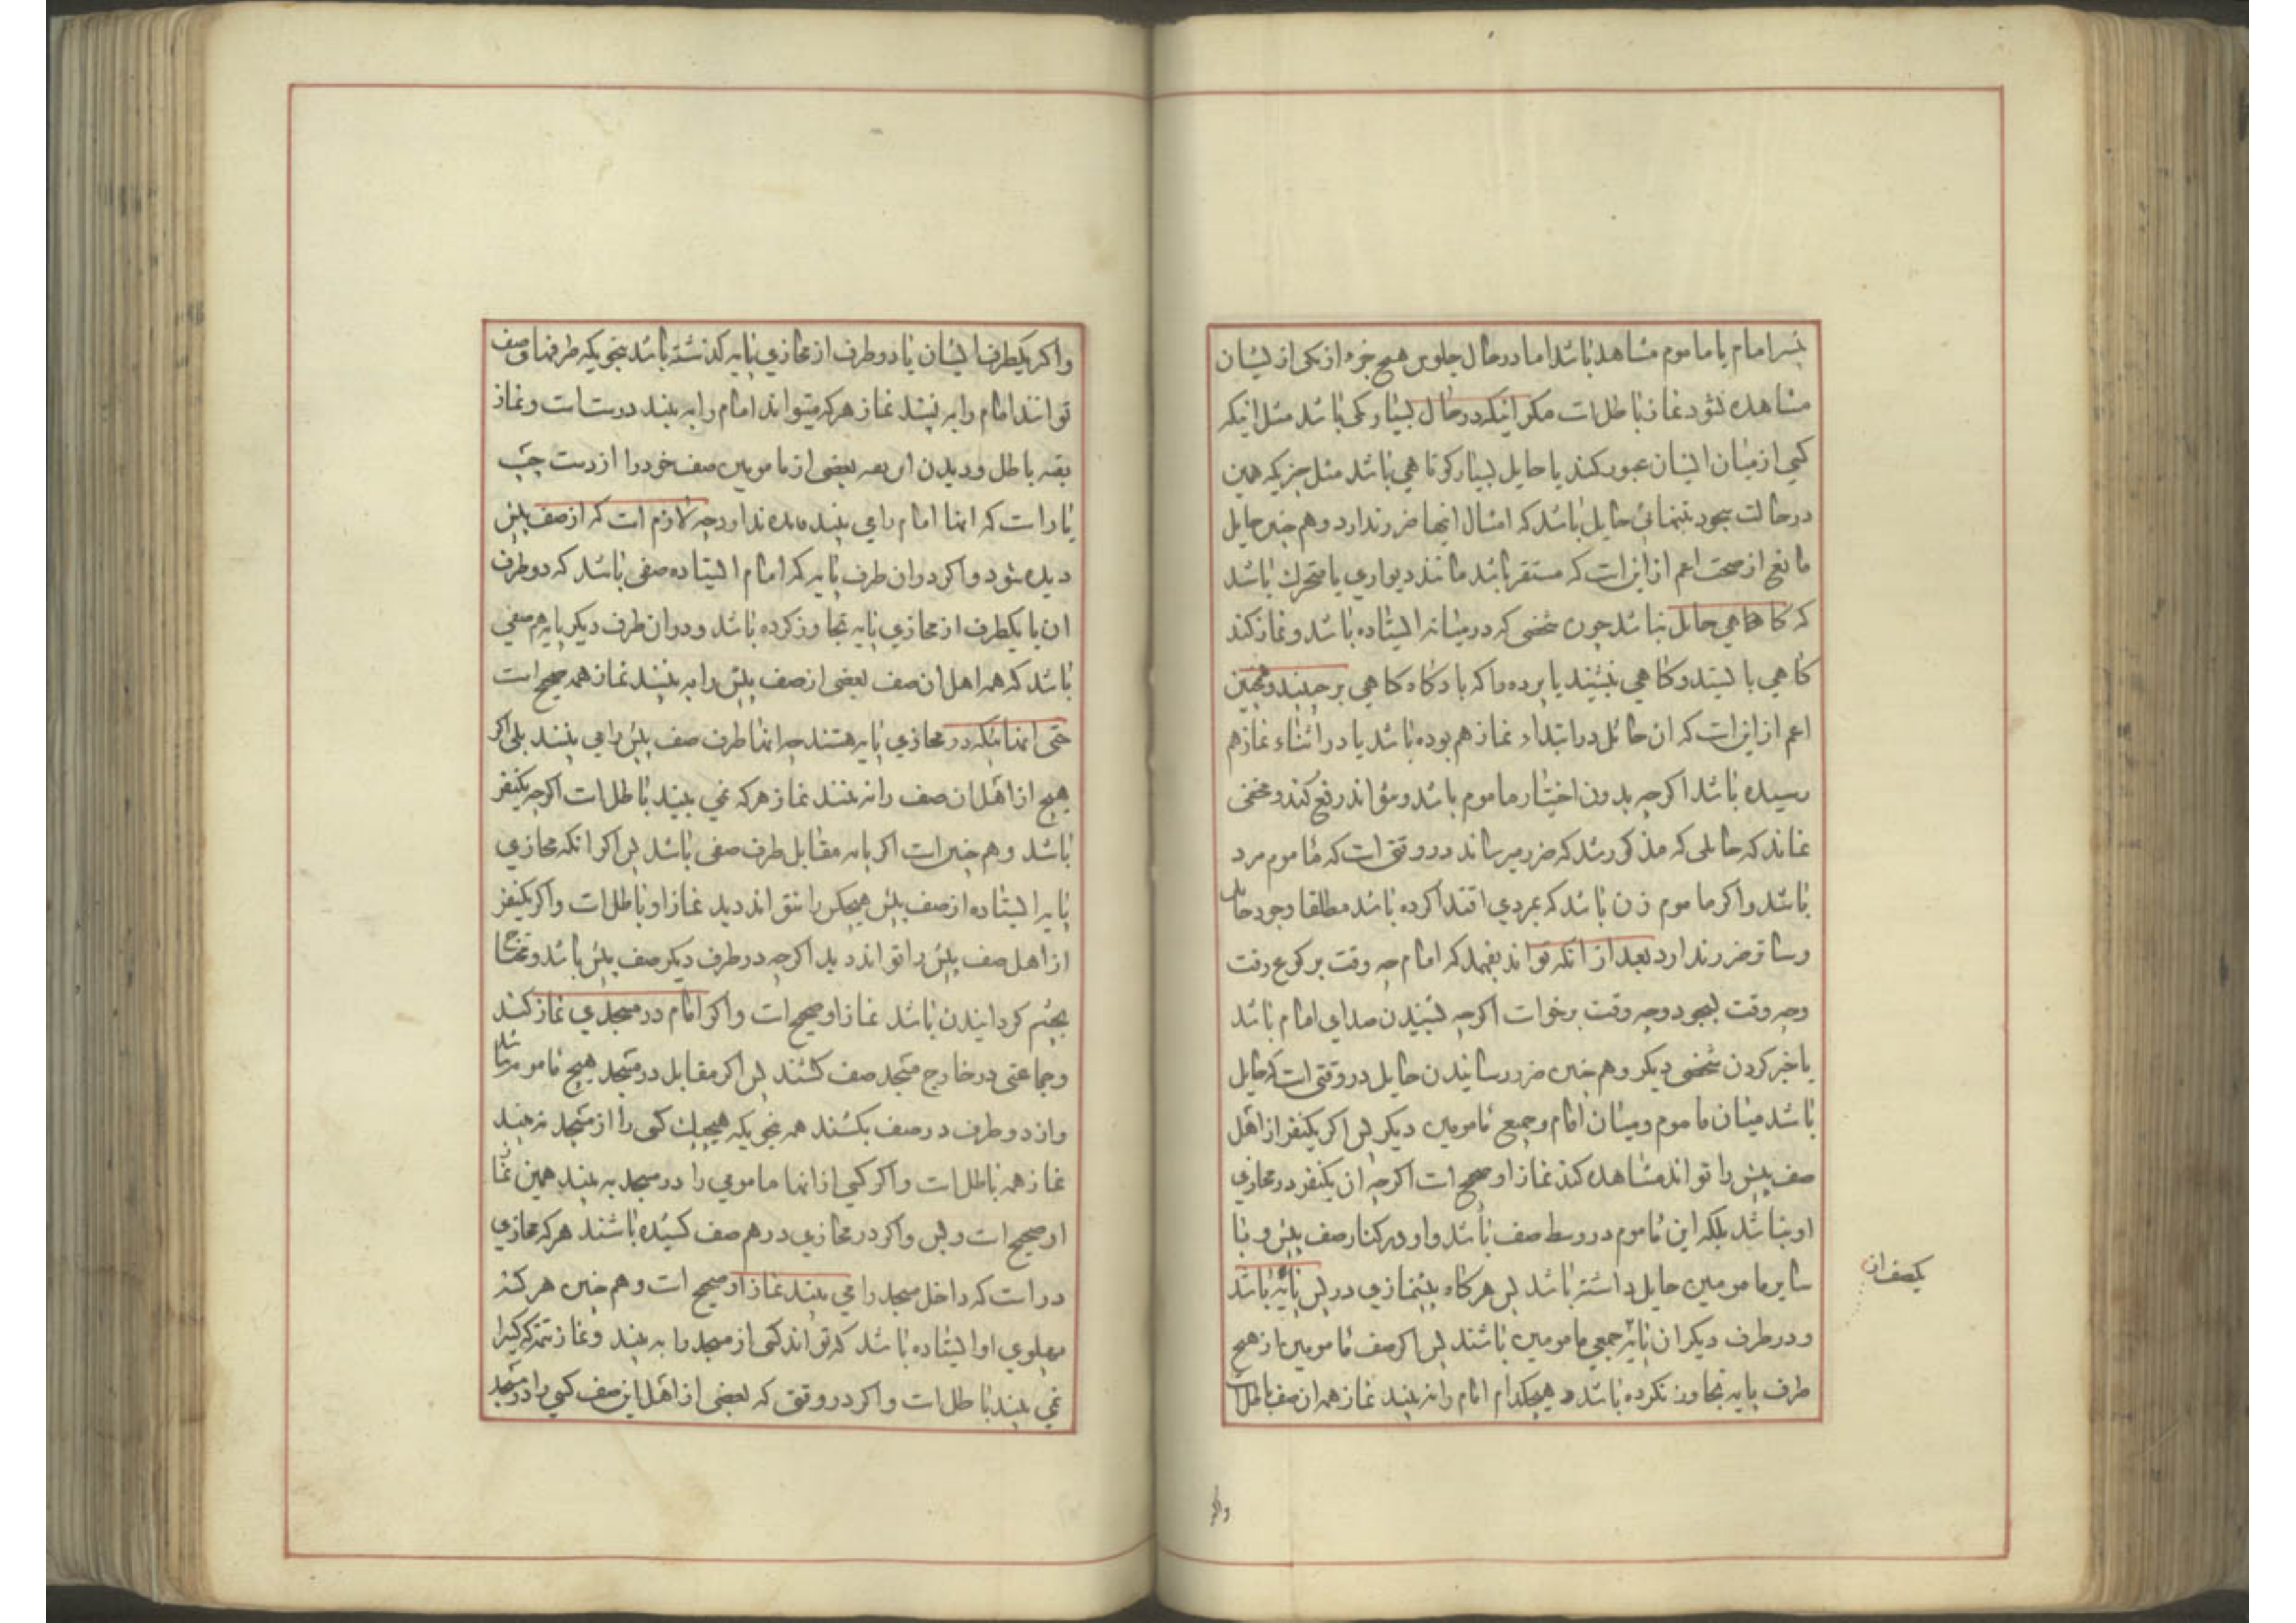 بسر امام یا ماموم مشاهد باشد اما در حال جلوس هیچ جزء از یکی از ایشان
مشاهده نشود نماز باطل است مکر انیکه در حال بسیار کمی باشد مثل انیکه
کسی از میان ایشان عبور کند یا حایل بسیار کوتاهی باشد مثل چیزیکه همین
در حالت سجود تنهائی حایل باشد که امثال اینها ضرر ندارد و هم چنین حایل
مانع از صحت اعم از این است که مستقر باشد مانند دیواری یا متحرک باشد
که کاهی حایل نباشد چون شخصی که در میانه ایستاده باشد و نماز کند
کاهی بایستد و کاهی بنشیند یا پرده را که باد کاه کاهی برچیند و همچنین
اعم از این است که ان حائل در ابتداء نماز هم بوده باشد یا در اثناء نماز هم
رسیده باشد اکرچه بدون اختیار ماموم باشد و نتواند رفع کند و مخفی
نماند که حایلی که مذکور شد که ضرر میرساند در وقتی است که ماموم مرد
باشد و اکر ماموم زن باشد که بمردی اقتدا کرده باشد مطلقا وجود حایل
و ساتر ضرر ندارد بعد از انکه تواند بفهمد که امام چه وقت برکوع رفت
و چه وقت بسجود و چه وقت برخواست اکرچه بشنیدن صدای امام باشد
یا خبر کردن شخصی دیکر و هم چنین ضرر رسانیدن حایل در وقتی است که حایل
باشد میان ماموم و میان امام و جمیع مامومین دیکر پس اکر یکنفر از اهل
صف پیش را تواند مشاهده کند نماز او صحیح است اکرچه ان یکنفر در محاذی
او نباشد بلکه این ماموم در وسط صف باشد و او در کنار صف پیش و با
سایر مامومین حایل داشته باشد پس هر کاه پیشنمازی در پس پایه باشد
یکصف ان
و در طرف دیکر ان پایه جمعی مامومین باشند پس اکر صف مامومین از هیچ
طرف پایه تجاوز نکرده باشد و هیچکدام امام را نه بیند نماز همه ان صف باطل است
واکر
واکر یکطرف ایشان یا دو طرف از محاذی پایه کذشته باشد بنحویکه طرفهای صف
توانند امام را به بینند نماز هر که میتواند امام را به بیند درست است و نماز
بقیه باطل و دیدن این بقیه بعضی از مامومین صف خود را از دست چپ
یا راست که انها امام را می بینند فایده ندارد چه لازم است که از صف پیش
دیده شود و اکر در ان طرف پایه که امام ایستاده صفی باشد که دو طرف
ان یا یکطرف از محاذی پایه تجاوز کرده باشد و در ان طرف دیکر پایه هم صفی
باشد که همه اهل ان صف بعضی از صف پیش را به بینند نماز همه صحیح است
حتی انهائیکه در محاذی پایه هستند چه انها طرف صف پیش را می بینند بلی اکر
هیچ از اهل ان صف را نه بینند نماز هر که نمی بیند باطل است اکرچه یکنفر
باشد و هم چنین است اکر پایه مقابل طرف صفی باشد پس اکر انکه محاذی
پایه ایستاده از صف پیش هیچکس را نتواند دید نماز او باطل است و اکر یکنفر
از اهل صف پیش را تواند دید اکرچه در طرف دیکر صف پیش باشد و محتاج
بچشم کردانیدن باشد نماز او صحیح است و اکر امام در مسجدی نماز کند
و جماعتی در خارج مسجد صف کشند پس اکر مقابل در مسجد هیچ ماموم نباشد
و از دو طرف در صف بکشند همه بنحویکه هیچیک کسی را از مسجد نه بیند
نماز همه باطل است و اکر کسی از انها مامومی را در مسجد به بیند همین نماز
او صحیح است و پس و اکر در محاذی در هم صف کشیده باشند هر که محاذی
در است که داخل مسجد را می بیند نماز او صحیح است و هم چنین هر که نه
پهلوی او ایستاده باشد که تواند کسی از مسجد را به بیند و نماز تتمه که کسی را
نمی بیند باطل است و اکر در وقتی که بعضی از اهل این صف کسی را در مسجد